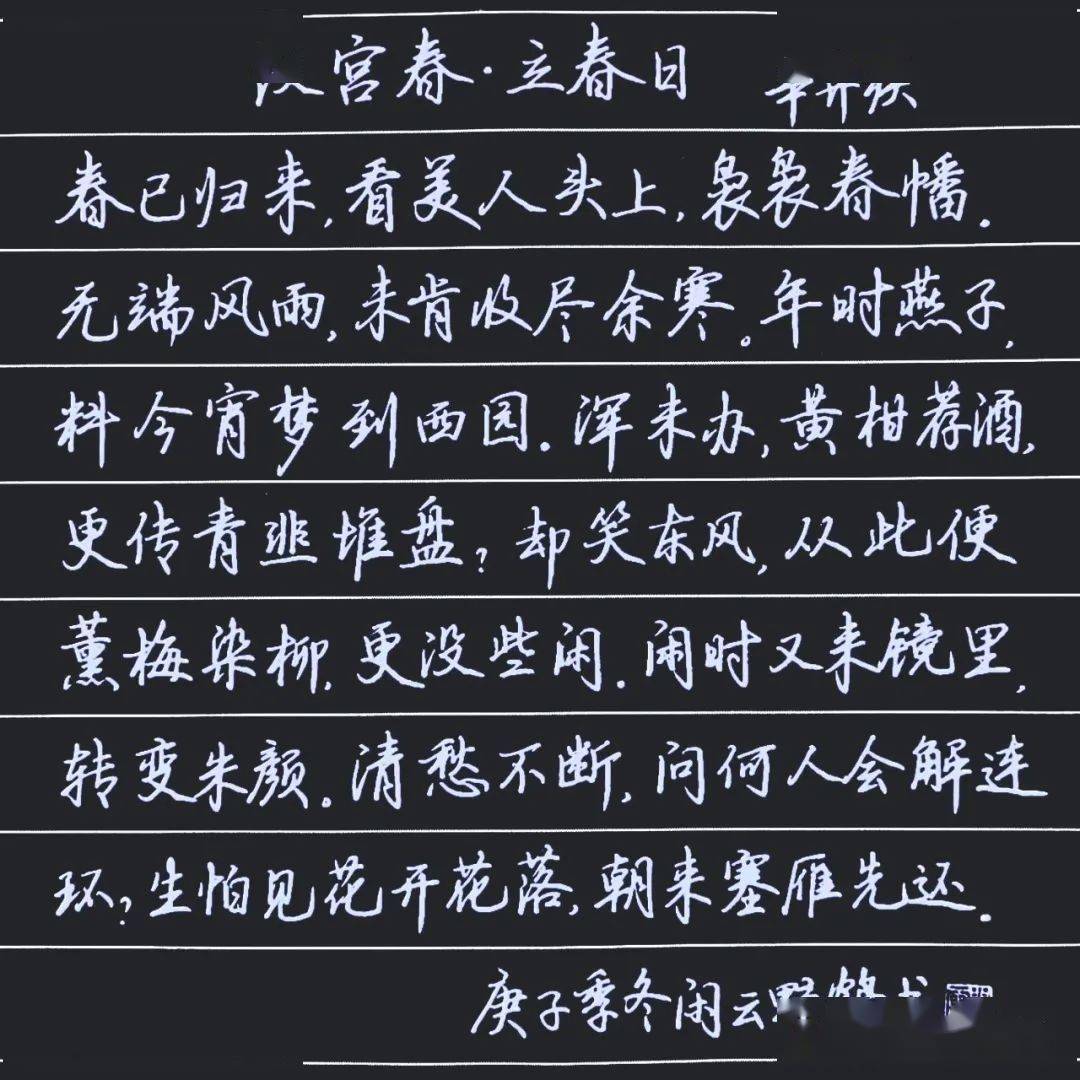 宫春·立春日
春已归来,看美人头上,袅袅春幡.
无端风雨,未肯收尽余寒。年时燕子,
料今宵梦到西园.浑未办,黄柑荐酒,
更传青韭堆盘?却笑东风,从此便
薰梅染柳,更没些闲.闲时又来镜里,
转变朱颜.清愁不断,问何人会解连
环?生怕见花开花落,朝来塞雁先还.
庚子季冬闲云